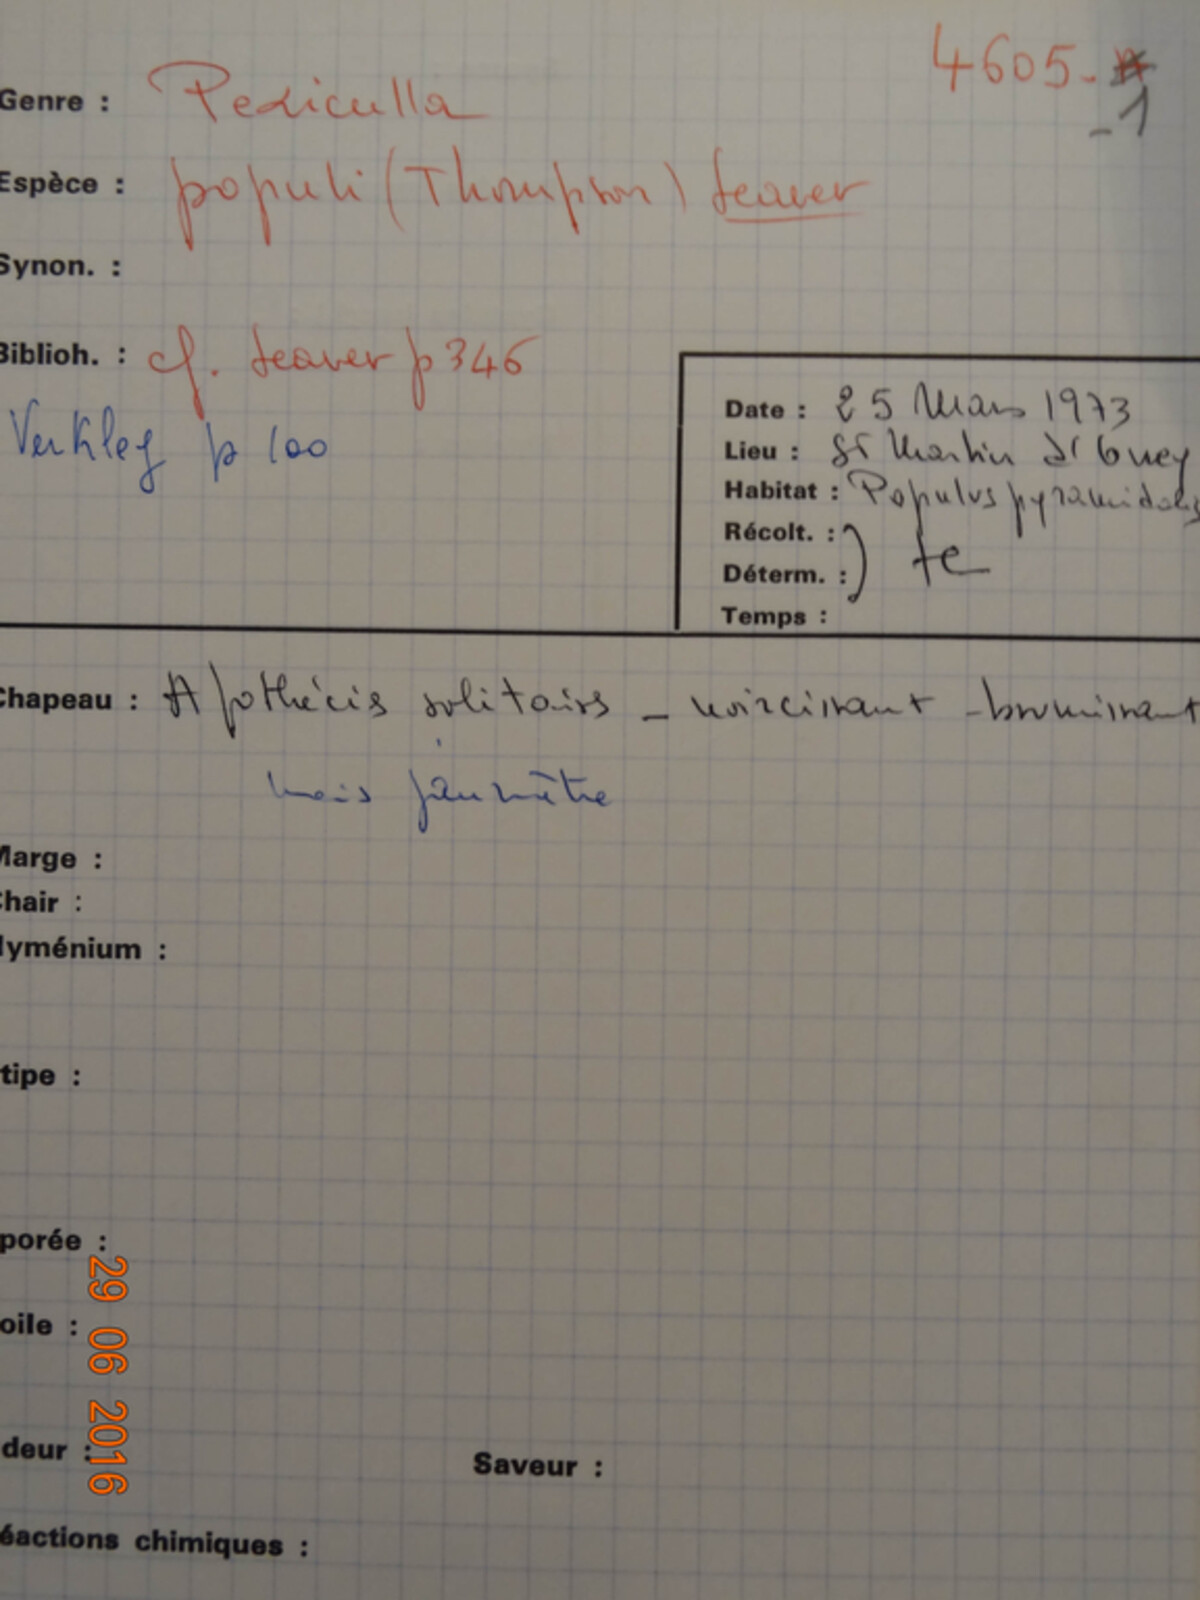 4605-
-1
Genre : Peziculla
Espèce : populi (Thompson) Seaver
Synon. :
Biblioh. : cf. Seaver p 346
Verkley p 100
Date : 25 Mars 1973
Lieu : St Martin d'
Habitat : Populus pyramidalis
Récolt. :
Déterm. :
Temps :
Chapeau : Apothécis solitairs - noircissant - brunissant
mais jaunâtre
Marge :
Chair :
Hyménium :
tipe :
porée :
oile :
deur :
Saveur :
éactions chimiques :
29 06 2016